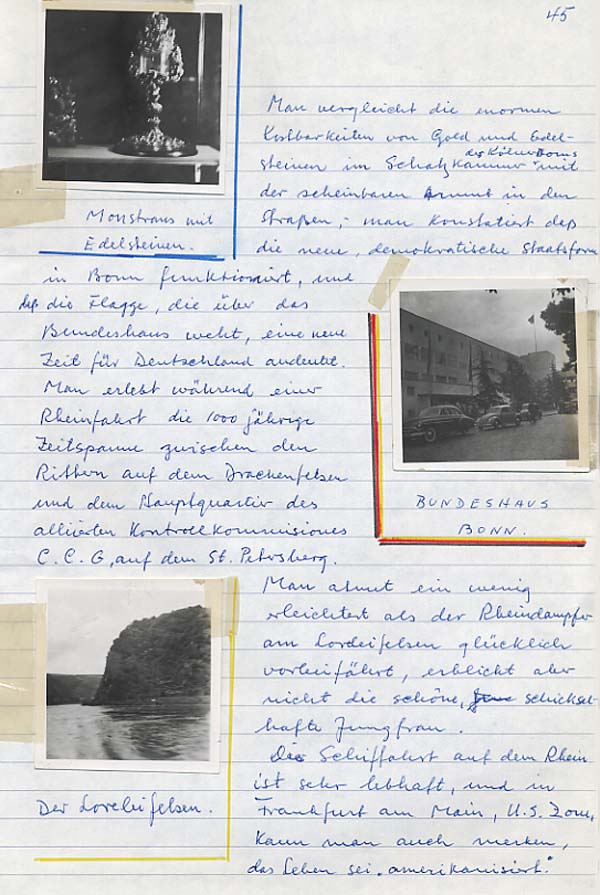 45
Man vergleicht die enormen
Kostbarkeiten von Gold und Edel-
steinen im Schatzkammer des Kölner Doms mit
der scheinbaren Armut in den
Straßen, - man konstatiert daß
die neue, demokratische Staatsform
Monstrans mit
Edelsteinen.
in Bonn funktioniert, und
daß die Flagge, die über das
Bundeshaus weht, eine neue
Zeit für Deutschland andeutet.
Man erlebt während einer
Rheinfahrt die 1000 jährige
Zeitspanne zwischen den
Rittern auf dem Drachenfelsen
und dem Hauptquartier des
alliierten Kontrollkommisiones
C.C.G, auf dem St. Petersberg.
BUNDESHAUS
BONN.
Man atmet ein wenig
erleichtert als der Rheindampfer
am Loreleifelsen glücklich
vorbeifährt, erblickt aber
nicht die schöne, schicksal-
hafte Jungfrau.
Die Schiffahrt auf dem Rhein
ist sehr lebhaft, und in
Frankfurt am Main, U.S. Zone,
kann man auch merken,
das Leben sei „amerikanisiert."
Der Loreleifelsen.